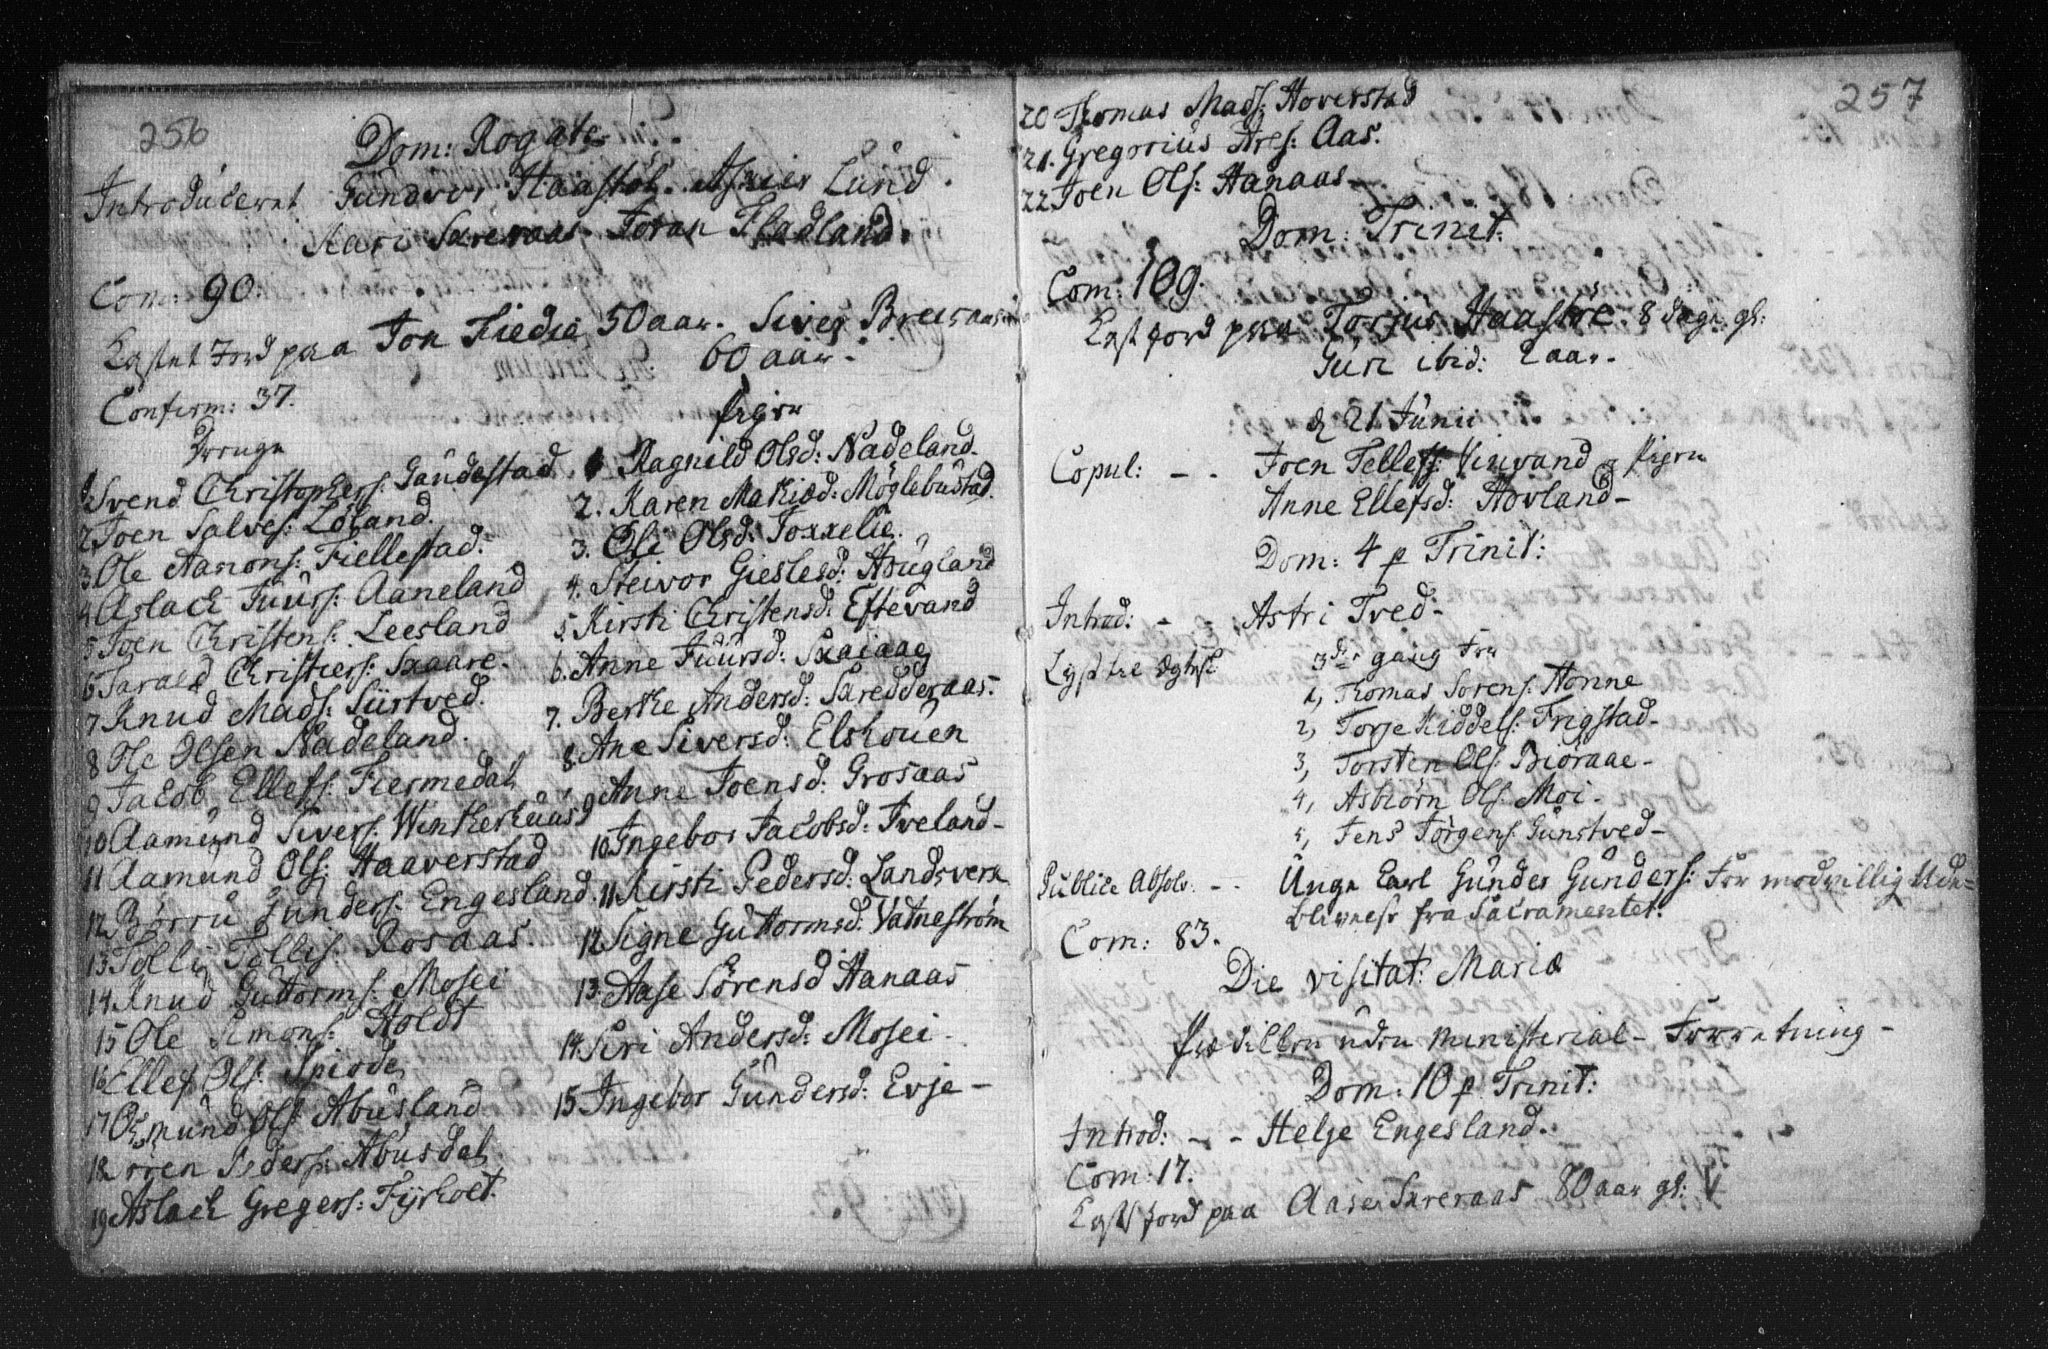 256
Dom: Rogate
Introduceret Gundvor Haastøl. Asnier Lund.
Kari Skreraas. Joran Fladland.
Com: 90.
Kastet Jord paa Jon Kiedie 50 aar. Siver Breiraas
60 aar.
Confirm: 37.
Drenge
1. Svend Christophers: Gaudestad
2. Joen Salves: Løland.
3. Ole Aanons: Fiellestad.
4 Aslach Tuurs: Aaneland
5 Joen Christens: Leesland
6 Tarald Christiers: Skaare.
7 Knud Mads: Siirtved.
8 Ole Olsen Nadeland.
9 Jacob Ellefs: Fiermedal
10 Aamund Sivers: Winterhuus
11 Aamund Ols: Haaverstad
12 Børru Gunders: Engesland.
13 Tolli Tollis: Rosaas.
14 Knud Guttorms: Mosei
15 Ole Simons: Holdt
16 Ellef Ols: Spiode
17 Osmund Ols: Abusland
18 Peders: Abusdal
19 Aslach Gregers: Fyrholt.
Piger
1 Ragnild Olsd: Nadeland.
2. Karen Makiæd: Møglebustad.
3. Ole Olsd: Toxxelie.
4. Steivor Gieslesd: Hougland
5. Kirsti Christensd: Eftevand
6. Anne Tuursd: Skaiaag
7. Berthe Andersd: Skredderaas.
8. Ane Siversd: Elskouen
9 Anne Joensd: Grosaas
10 Ingebor Jacobsd: Iveland-
11 Kirsti Pedersd: Landsverk
12 Signe Guttormsd: Vatnestrøm
13. Aase Sørensd Hanaas
14. Siri Andersd: Mosei-
15. Ingebor Gundersd: Evje-
257
20 Thomas Mads: Hoverstad
21. Gregorius Ares: Aas.
22 Joen Ols: Hanaas
Dom: Trinit:
Com: 109.
Kast jord paa Torjus Haastøe 8 dage gl:
Guri ibid: 2 aar.
d 21 Junii
Copul: - - Joen Tellefs: Vinvand og Pigen
Anne Ellefsd: Hovland-
Dom: 4 p Trinit:
Introd: - - Astri Tved-
Lyst til Egtesk: 3die gang for
1, Thomas Sørens: Honne
2, Torje Kiddels: Frigstad-
3, Torsten Ols: Biøraae-
4, Asbiørn Ols: Moi-
5, Jens Jørgens: Gunstved-
Publice Absolv: - - Unge Carl Gunder Gunders: for modvillig Ude=
blivelse fra Sacramentet.
Com: 83.
Die visitat: Mariæ
Prædiken uden Ministerial-Forretning-
Dom: 10 p Trinit:
Introd: - - Helje Engesland.
Com: 17.
Kast jord paa Aase Skreraas 80 aar gl: